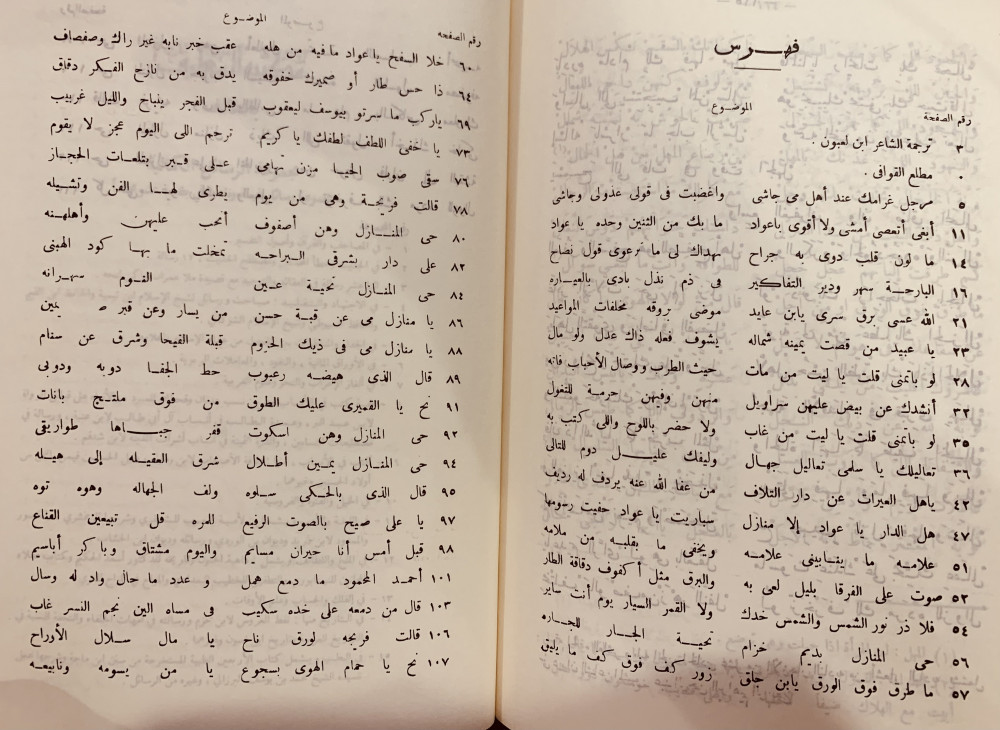 فهرس
الموضوع
رقم الصفحة
٣ ترجمة الشاعر ابن لعبون .
٠ مطلع القوافى .
٥ مرجل غرامك عند أهل مى جاشى واغضبت فى قولى عذولى وجاشى
١١ أبغى أتعصى أمشى ولا أقوى ياعواد ما بك من الثنين وحده يا عواد
١٤ ما لون قلب دوى به جراح سهداك لى ما ترعوى قول نصاح
١٦ البارحة سهر ودير التفاكير فى ذم نذل بادى بالعياره
٢١ الله عسى برق سرى يابن عايد موضى بروقه مخلفات المواعيد
٢٣ يا عبيد من قصت يمينه شماله يشوف فعله ذاك عدل ولو مال
٢٨ لو باتمنى قلت يا ليت من مات حيث الطرب ووصال الأحباب فاته
٣٢ أنشدك عن بيض عليهن سراويل منهن وفيهن حرمة للتغول
٣٥ لو باتمنى قلت يا ليت من غاب ولا حضر باللوح واللى كتب به
٣٦ تعاليلك يا سلمى تعاليل جهال وليفك عليل دوم للتالى
٤٢ ياهل العيرات عن دار التلاف من عفا الله عنه يردف له رديف
٤٧ هل الدار يا عواد إلا منازل سباريت يا عواد خفيت رسومها
٥١ علامه ما يقابينى علامه ويخفى ما بقلبه من ملامه
٥٢ صوت على الفرقا بليل لعى به والبرق مثل أكفوف دقاقة الطار
٥٤ فلا ذر نور الشمس والشمس خدك ولا القمر السيار يوم أنت ساير
٥٦ حى المنازل بديم خزام تحية الجار للجاره
٥٧ ما طرق فوق الورق يابن جلق زور كف فوق كف ما يليق
الموضوع
رقم الصفحه
٦٠ خلا السفح يا عواد ما فيه من هله عقب خبر نابه غير راك وصفصاف
٦٤ ذا حس طار أو ضميرك خفوقه يدق به من نازح الفكر دقاق
٦٩ ياركب ما سرتو بيوسف ليعقوب قبل الفجر ينباح والليل غربيب
٧٣ يا خفى اللطف لطفك يا كريم ترحم اللى اليوم عجز لا يقوم
٧٦ سقى صوت الحيا مزن تهامى على قبر بتلعات الحجاز
٧٨ قالت فريحة وهى من يوم يطرى لها الفن وتشيله
٨٠ حى المنازل وهن أصفوف أنحب عليهن وأهلهنه
٨٢ على دار بشرق البراحه تمخلت ما بها كود الهبنى
٨٤ حى المنازل تحية عين القوم سهرانه
٨٦ يا منازل مى عن قبة حسن من يسار وعن قبر يمين
٨٨ يا منازل مى فى ذيك الحزوم قبلة الفيحا وشرق عن سنام
٨٩ قال الذى هيضه رعبوب حط الجفا دوبه ودوبى
٩١ نح يا القميرى عليك الطوق من فوق ملتج بانات
٩٢ حى المنازل وهن اسكوت قفر جباها طواريقى
٩٤ حى المنازل يمين أطلال شرق العقيله إلى هيله
٩٥ قال الذى بالحكى ساوه ولف الجهاله وهوه توه
٩٧ يا على صيح بالصوت الرفيع للمره قل تبيعين القناع
٩٨ قبل أمس أنا حيران مسايم واليوم مشتاق وباكر أباسيم
١٠١ أحمد المحمود ما دمع همل وعدد ما حال واد له وسال
١٠٣ قال من دمعه على خده سكيب فى مساه البن نجم النسر غاب
١٠٦ قالت فريحه لورق ناح يا مال سلال الأوراح
١٠٧ نح يا حمام الهوى بسجوع يا من يسومه ونابيعه